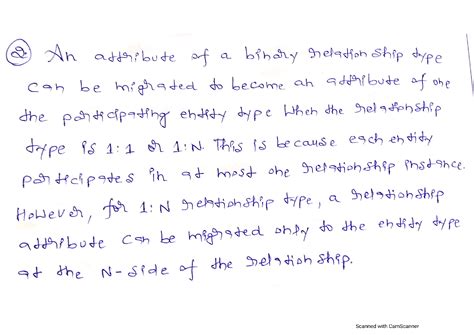 ② An attribute of a binary relationship type
can be migrated to become an attribute of one
the participating entity type when the relationship
type is 1:1 or 1:N. This is because each entity
participates in at most one relationship instance.
However, for 1:N relationship type, a relationship
attribute can be migrated only to the entity type
at the N-side of the relationship.
Scanned with CamScanner